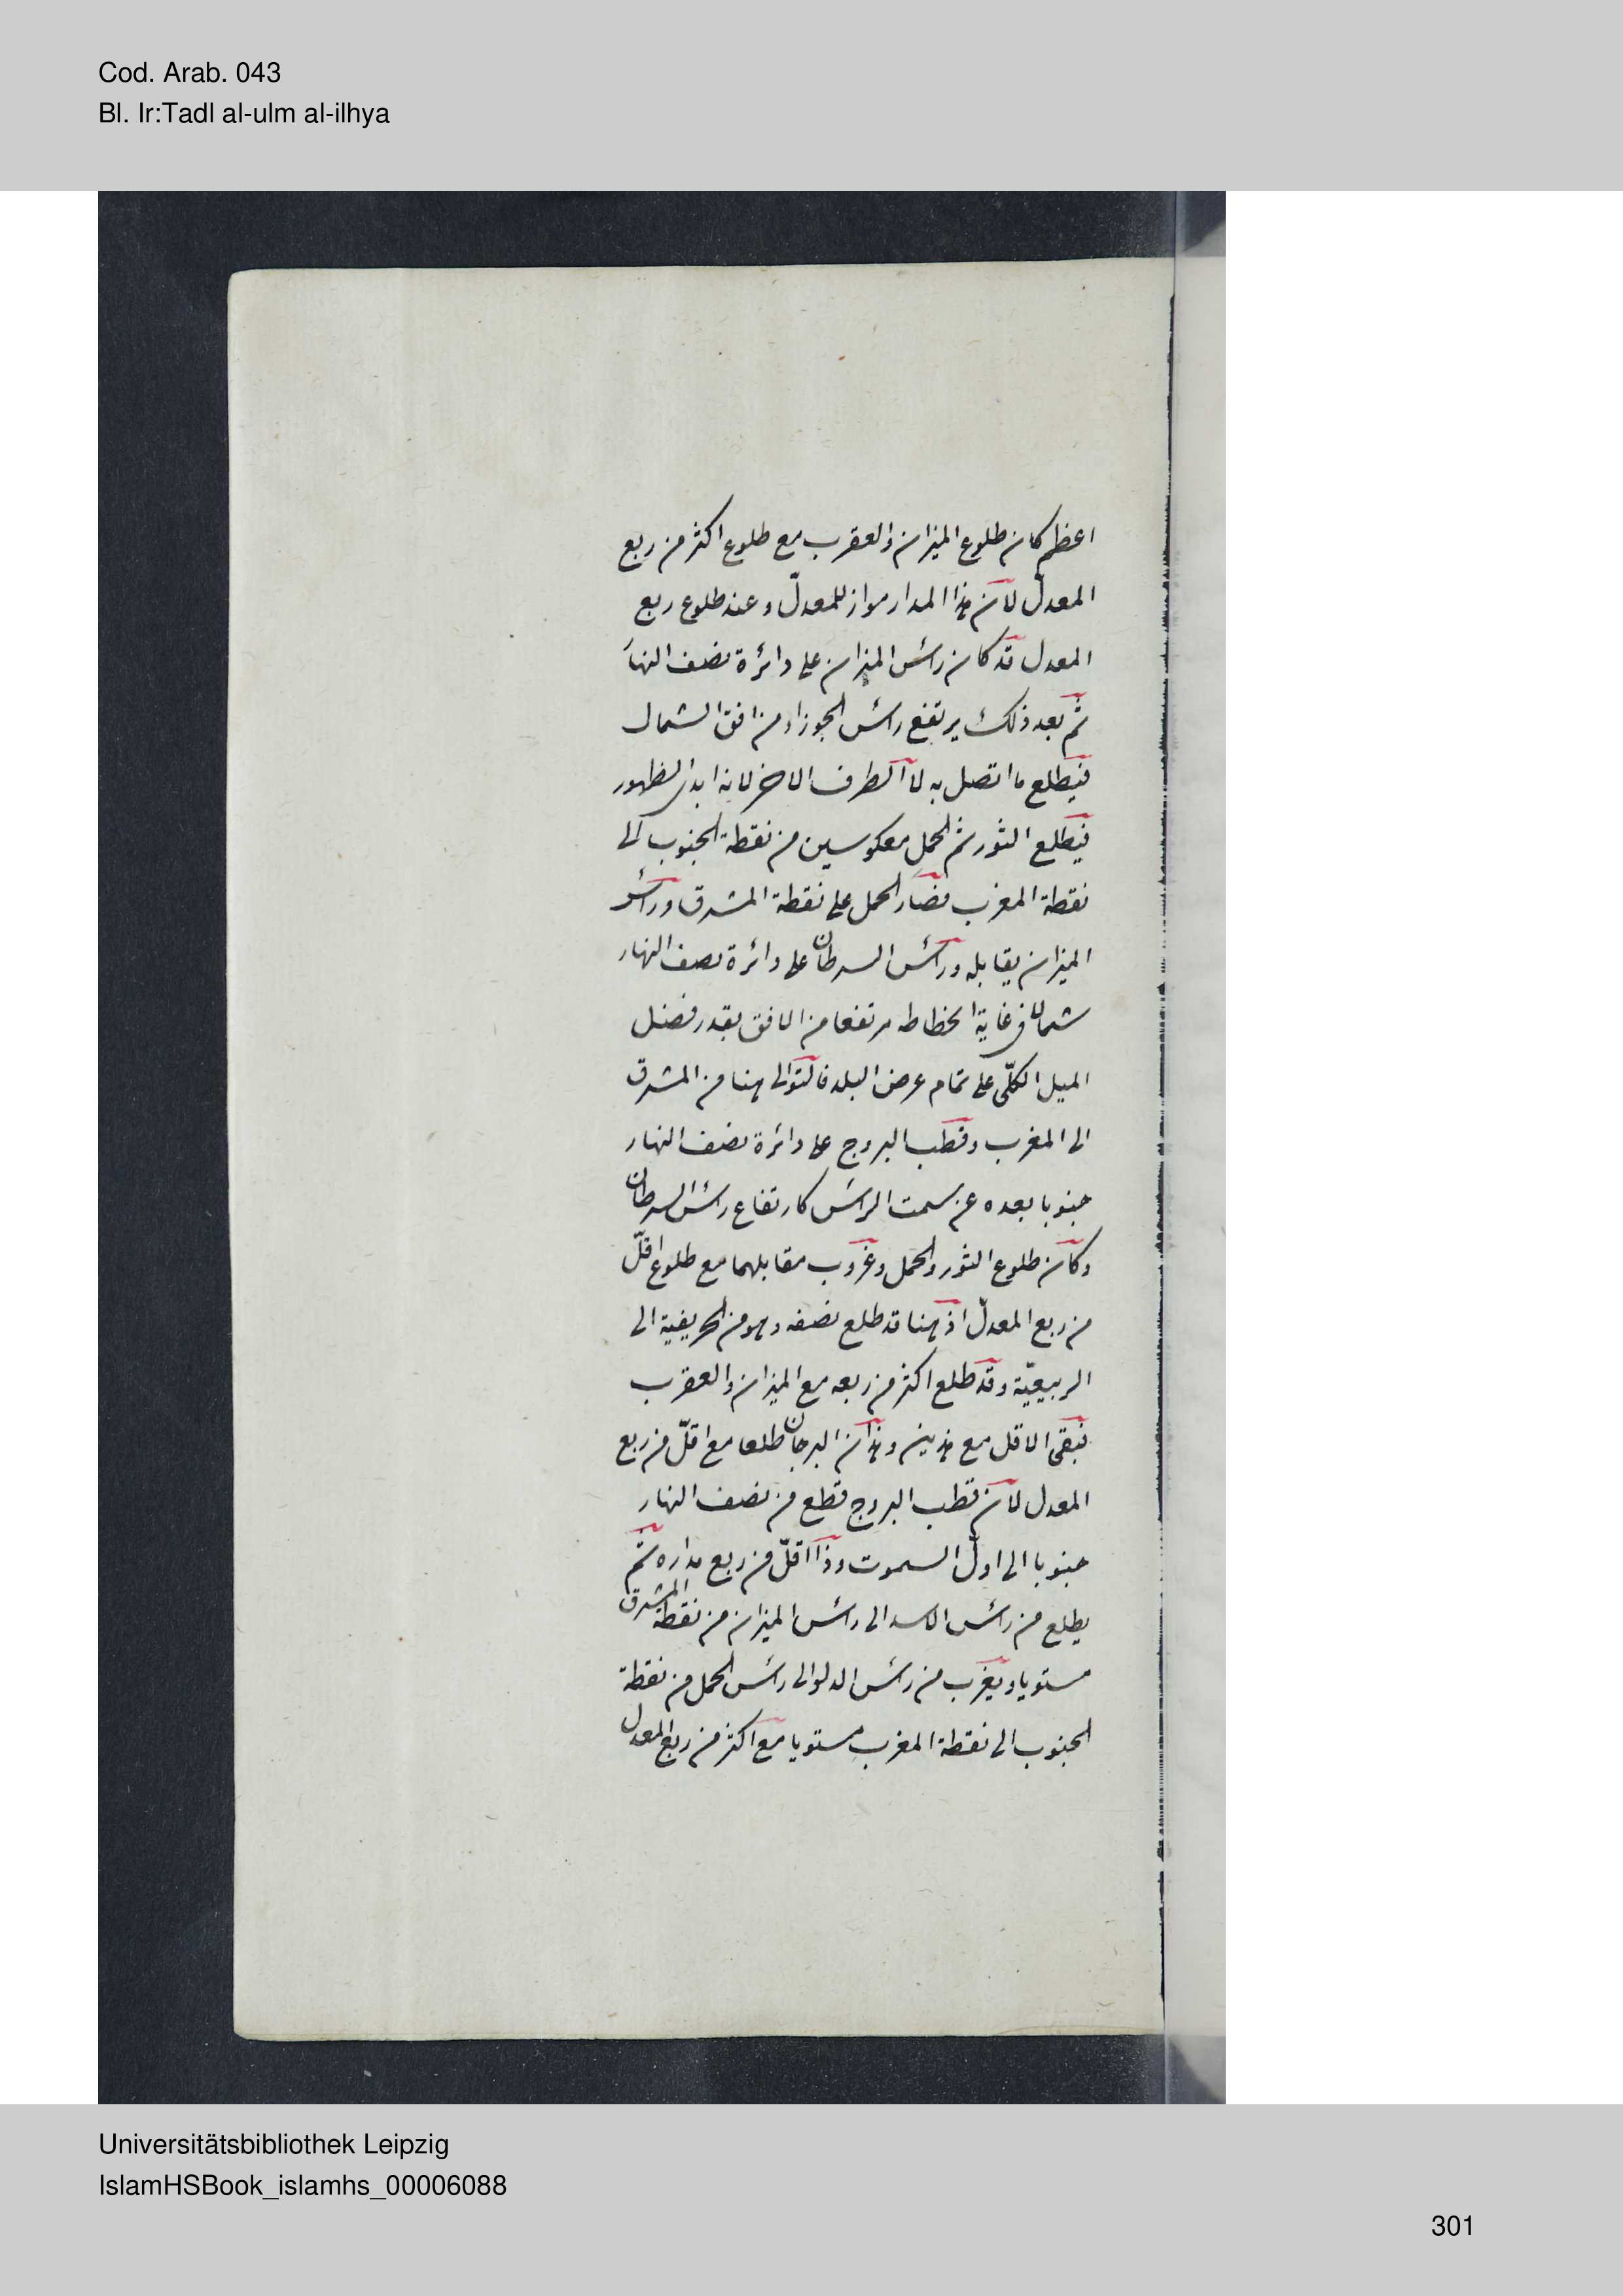 Cod. Arab. 043
Bl. Ir:Tadl al-ulm al-ilhya
اعظم كان طلوع الميزان والعقرب مع طلوع اكثر من ربع
المعدلّ لانّ هذا المدار مواز للمعدلّ وعند طلوع ربع
المعدل قد كان رأس الميزان على دائرة نصف النهار
ثم بعد ذلك يرتفع رأس الجوزاء من افق الشمال
فيطلع ما اتصل به لا الطرف الاخر لانه ابدى الظهور
فيطلع الثور ثم الحمل معكوسين من نقطة الجنوب الى
نقطة المغرب فصار الحمل على نقطة المشرق ورأس
الميزان يقابله ورأس السرطان على دائرة نصف النهار
شمالا فى غاية انحطاطه مرتفعا من الافق بقدر فضل
الميل الكلّى على تمام عرض البلد فالتوالى هنا من المشرق
الى المغرب وقطب البروج على دائرة نصف النهار
جنوبا بعده عن سمت الرأس كارتفاع رأس السرطان
وكان طلوع الثور والحمل وغروب مقابلهما مع طلوع اقلّ
من ربع المعدلّ اذ هنا قد طلع نصفه وهو من الخريفية الى
الربيعيّة وقد طلع اكثر من ربعه مع الميزان والعقرب
فبقى الاقل مع هذين وهذان البرجان طلعا مع اقلّ من ربع
المعدل لان قطب البروج قطع من نصف النهار
جنوبا الى اولّ السموت وذا اقلّ من ربع مداره ثم
يطلع من رأس الاسد الى رأس الميزان من نقطة المشرق
مستويا ويغرب من رأس الدلو الى رأس الحمل من نقطة
الجنوب الى نقطة المغرب مستويا مع اكثر من ربع المعدل
Universitätsbibliothek Leipzig
IslamHSBook_islamhs_00006088
301